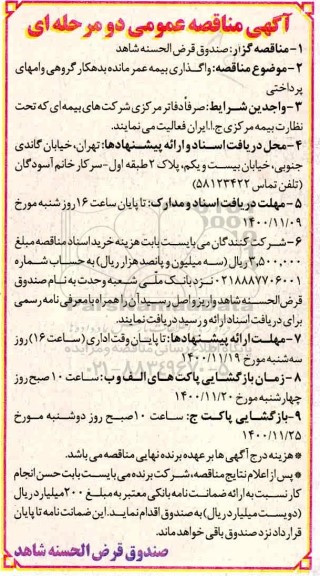 آگهی مناقصه عمومی دو مرحله ای
۱- مناقصه گزار: صندوق قرض الحسنه شاهد
۲-موضوع مناقصه: واگذاری بیمه عمر مانده بدهکار گروهی وامهای
پرداختی
۳-واجدین شرایط: صرفاً دفاتر مرکزی شرکت های بیمه ای که تحت
نظارت بیمه مرکزی ج.ا.ایران فعالیت می نمایند.
۴-محل دریافت اسناد و ارائه پیشنهادها: تهران، خیابان گاندی
جنوبی، خیابان بیست و یکم، پلاک ۲ طبقه اول-سرکار خانم آسودگان
(تلفن تماس ۵۸۱۲۳۴۲۲)
۵- مهلت دریافت اسناد و مدارک: تا پایان ساعت ۱۶ روز شنبه مورخ
۱۴۰۰/۱۱/۰۹
۶-شرکت کنندگان می بایست بابت هزینه خرید اسناد مناقصه مبلغ
۳,۵۰۰,۰۰۰ ریال (سه میلیون و پانصد هزار ریال) به حساب شماره
۰۲۱۸۸۸۷۷۰۶۰۰۱ نزد بانک ملّی شعبه وحدت به نام صندوق
قرض الحسنه شاهد واریز و اصل رسید آن را همراه با معرفی نامه رسمی
برای دریافت اسناد ارائه و رسید دریافت نمایند.
۷-مهلت ارائه پیشنهادها: تا پایان وقت اداری (ساعت ۱۶) روز
سه شنبه مورخ ۱۴۰۰/۱۱/۱۹
۸-زمان بازگشایی پاکت های الف و ب: ساعت ۱۰ صبح روز
چهارشنبه مورخ ۱۴۰۰/۱۱/۲۰
۹-بازگشایی پاکت ج: ساعت ۱۰ صبح روز دوشنبه مورخ
۱۴۰۰/۱۱/۲۵
* هزینه درج آگهی ها بر عهده برنده نهایی مناقصه می باشد.
* پس از اعلام نتایج مناقصه، شرکت برنده می بایست بابت حسن انجام
کار نسبت به ارائه ضمانت نامه بانکی معتبر به مبلغ ۲۰۰ میلیارد ریال
(دویست میلیارد ریال) به صندوق اقدام نماید. این ضمانت نامه تا پایان
قرارداد نزد صندوق باقی خواهد ماند.
صندوق قرض الحسنه شاهد